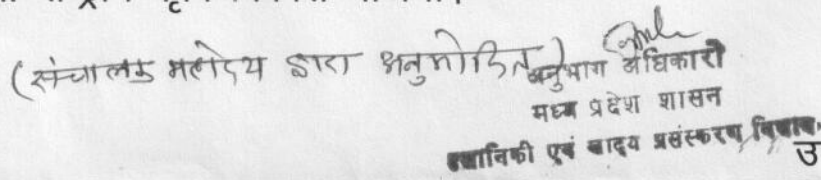 (संचालक महोदय द्वारा अनुमोदित)
अनुभाग अधिकारी
मध्य प्रदेश शासन
उद्यानिकी एवं खाद्य प्रसंस्करण विभाग
उ